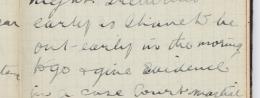 early & shave to be
out early in the morning
to go & give evidence
in a case Court martial